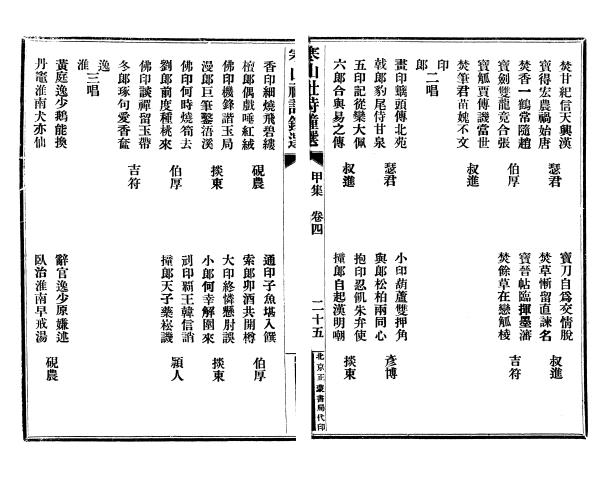 焚甘紀信天興漢
寶得宏農禍始唐
瑟君
寶刀自為交情脫
焚草慚留直諫名
叔進
焚香一鶴常隨趙
寶劍雙龍竟合張
伯厚
寶晉帖臨揮墨瀋
焚餘草在戀觚棱
吉符
寶觚賈傳譏當世
焚筆君苗媿不文
叔進
印
郎
二唱
畫印鵝頭傳北苑
戟郎豹尾侍甘泉
瑟君
小印葫蘆雙押角
與郎松柏兩同心
彥博
五印記從欒大佩
六郎合與易之傳
叔進
抱印忍飢朱弁使
撞郎自起漢明嘲
掞東
寒山社詩鐘選
甲集
卷四
二十五
北京正蒙書局代印
香印細燒飛碧縷
檀郎偶戲唾紅絨
硯農
通印子魚堪入饌
索郎卯酒共開樽
伯厚
佛印機鋒諧玉局
漫郎巨筆鑿浯溪
掞東
大印終憐懸肘誤
小郎何幸解圍來
掞東
佛印何時燒筍去
劉郎前度種桃來
伯厚
刓印霸王韓信誚
撞郎天子藥崧譏
穎人
佛印談禪留玉帶
冬郎琢句愛香奩
吉符
逸
淮
三唱
黃庭逸少鵝能換
丹竈淮南犬亦仙
辭官逸少原嫌述
臥治淮南早戒湯
硯農